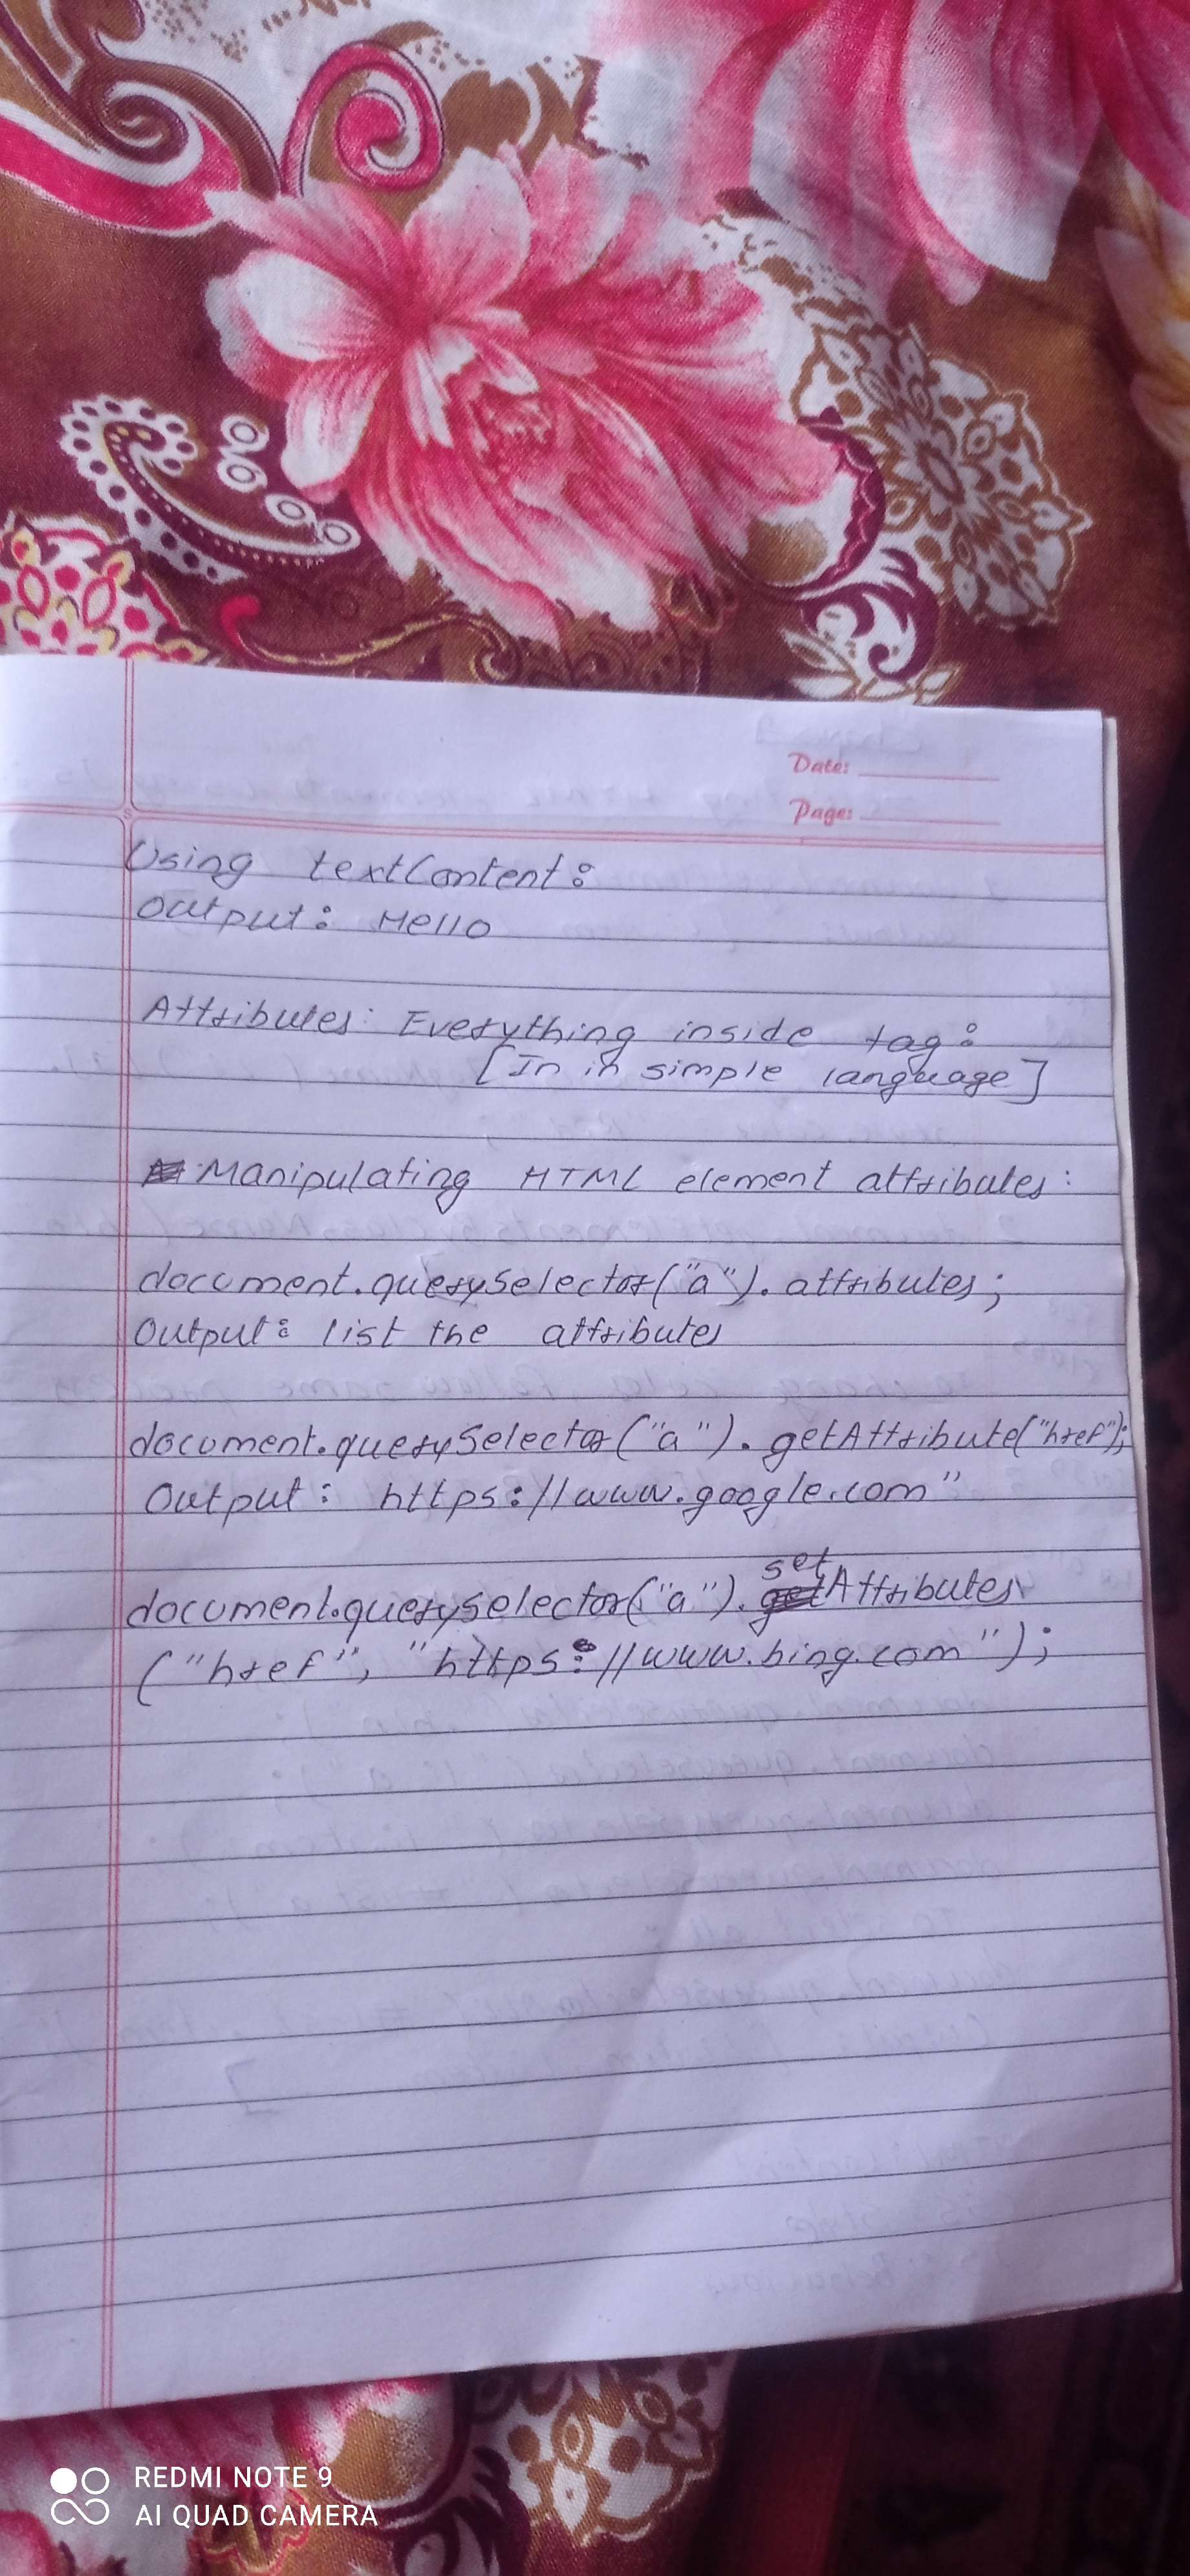 Date:
Page:
Using textContent:
Output: Hello
Attributes: Everything inside tag:
[In in simple language]
Manipulating HTML element attributes:
document.querySelector("a").attributes;
Output: list the attributes
document.querySelector("a").getAttribute("href");
Output: https://www.google.com"
set
document.querySelector("a").getAttributes
("href", "https://www.bing.com");
REDMI NOTE 9
AI QUAD CAMERA